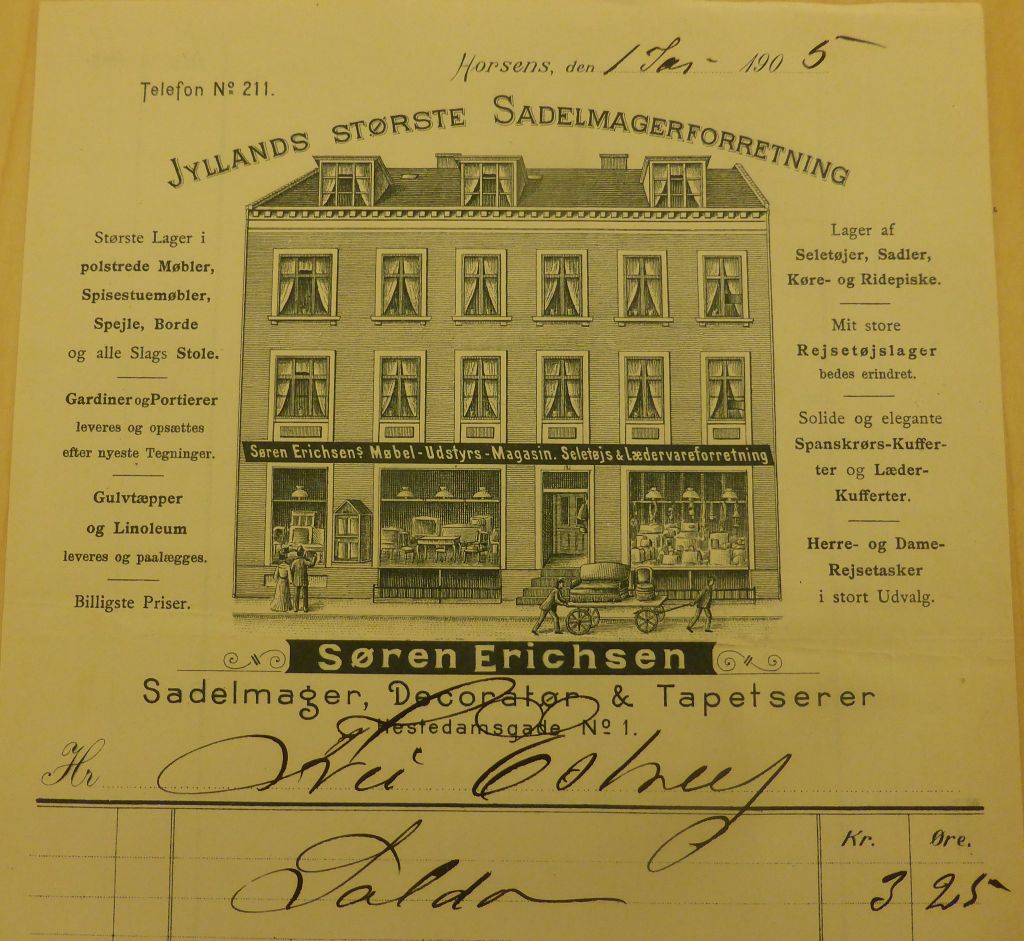 Horsens, den 1 Jan - 1905
Telefon Nº 211.
JYLLANDS STØRSTE SADELMAGERFORRETNING
Største Lager i
polstrede Møbler,
Spisestuemøbler,
Spejle, Borde
og alle Slags Stole.
Gardiner og Portierer
leveres og opsættes
efter nyeste Tegninger.
Gulvtæpper
og Linoleum
leveres og paalægges.
Billigste Priser.
Søren Erichsens Møbel-Udstyrs-Magasin. Seletøjs & Lædervareforretning
Lager af
Seletøjer, Sadler,
Køre- og Ridepiske.
Mit store
Rejsetøjslager
bedes erindret.
Solide og elegante
Spanskrørs-Kuffer-
ter og Læder-
Kufferter.
Herre- og Dame-
Rejsetasker
i stort Udvalg.
SØREN ERICHSEN
Sadelmager, Decoratør & Tapetserer
Hestedamsgade Nº 1.
Hr
Kr. Øre.
Saldo 3 25